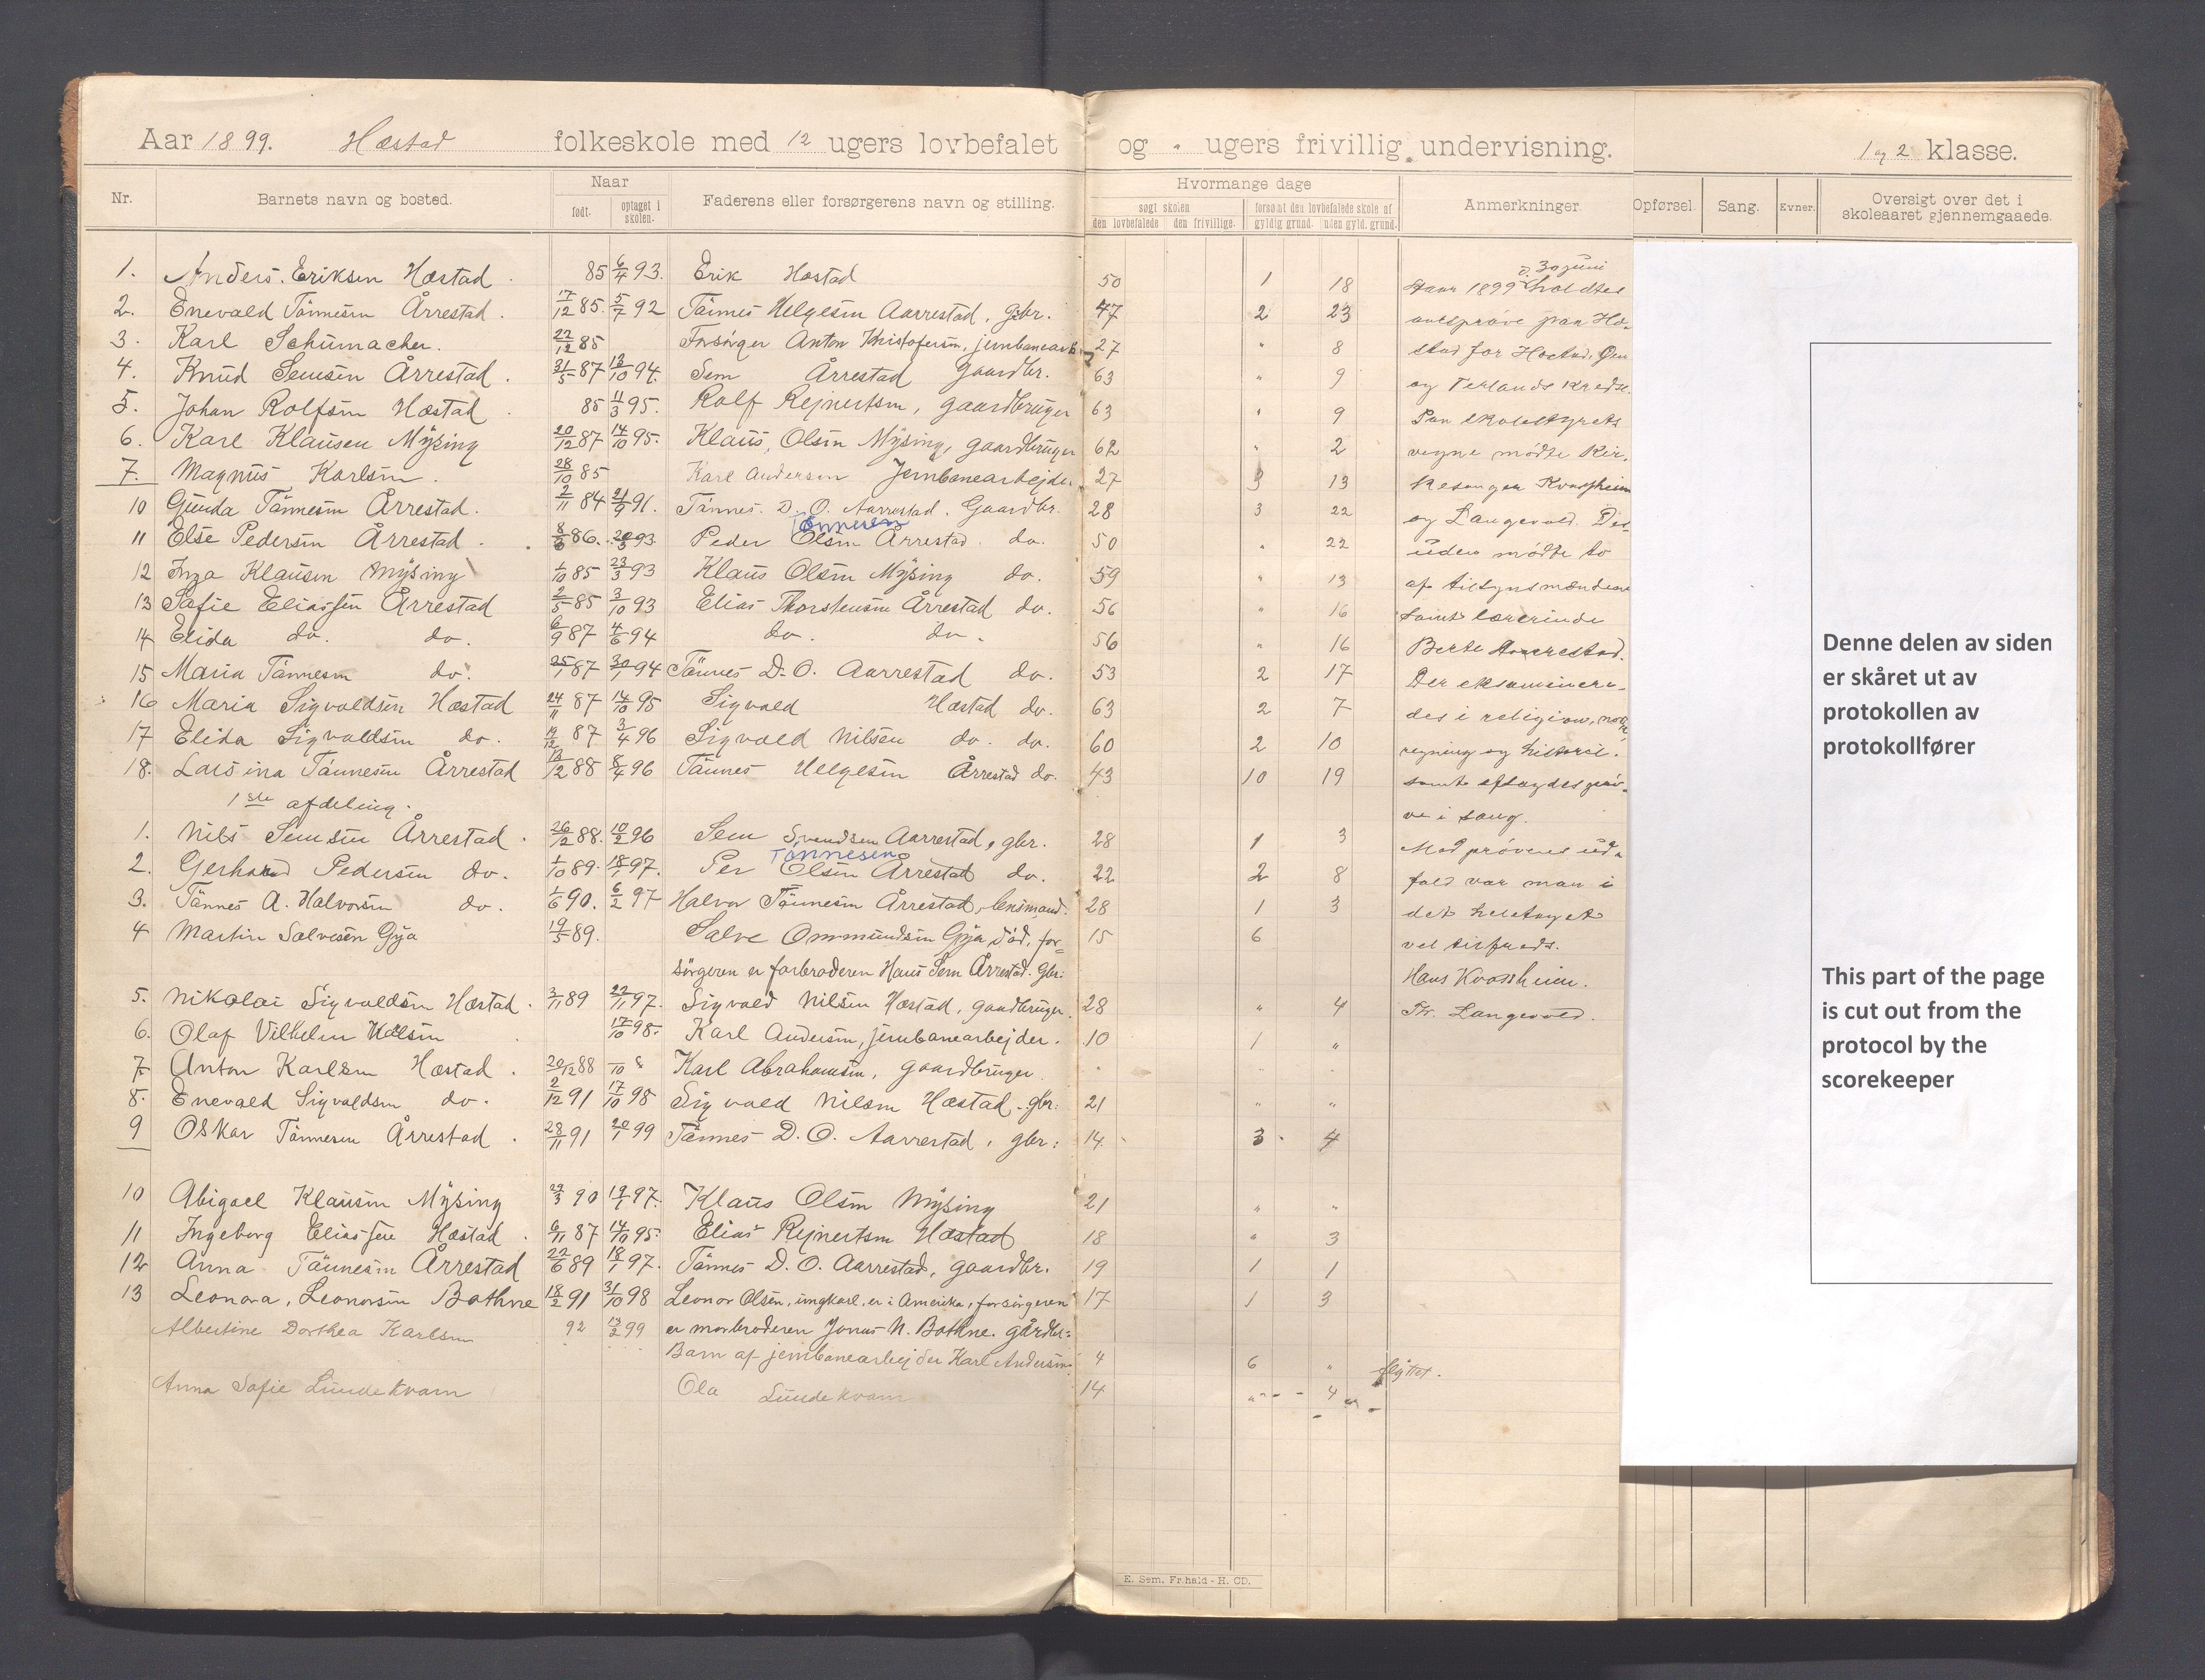 Aar 1899. Hæstad folkeskole med 12 ugers lovbefalet og " ugers frivillig undervisning. 1 og 2 klasse.
Nr. Barnets navn og bosted. Naar født. optaget i skolen. Faderens eller forsørgerens navn og stilling. Hvormange dage søgt skolen den lovbefalede den frivillige. forsømt den lovbefalede skole af gyldig grund. uden gyld. grund. Anmerkninger. Opførsel. Sang. Evner. Oversigt over det i skoleaaret gjennemgaaede.
1. Anders Eriksen Hæstad 85 6/4 93. Erik Hæstad 50 1 18
2. Enevald Tönnesen Årrestad. 17/12 85. 5/7 92 Tönnes Helgesen Aarrestad, gbr. 47 2 23
3. Karl Schumacher. 22/12 85 Forsörger Anton Kristofersen, jernbanearb. 27 " 8
4. Knud Semsen Årrestad. 31/5 87 13/10 94. Sem Årrestad Gaardbr. 63 " 9
5. Johan Rolfsen Hæstad 85 11/3 95. Rolf Rejnertsen, gaardbruger 63 " 9
6. Karl Klausen Mÿsing 20/12 87 14/10 95. Klaus Olsen Mÿsing, gaardbruger 62 " 2
7. Magnus Karlsen. 28/10 85 Karl Andersen Jernbanearbejder 27 3 13
10 Gunda Tönnesen Årrestad. 2/11 84 21/9 91. Tönnes D. O. Aarrestad. Gaardbr. 28 3 22
Tönnesen
11 Else Pedersen Årrestad 86. 93. Peder Olsen Årrestad do. 50 " 22
12 Inga Klausen Mÿsing 1/10 85 23/3 93 Klaus Olsen Mÿsing do. 59 " 13
13 Sofie Eliassen Årrestad 2/5 85 3/10 93 Elias Thorstensen Årrestad do. 56 " 16
14 Elida do. do. 6/9 87 4/6 94 do. do. 56 " 16
15 Maria Tönnesen do. 25/1 87 30/1 94 Tönnes D. O. Aarrestad do. 53 2 17
16 Maria Sigvaldsen Hæstad 24/11 87 14/10 95 Sigvald Hæstad do. 63 2 7
17 Elida Sigvaldsen do. 87 3/4 96 Sigvald Nilsen do. do. 60 2 10
18. Larsina Tönnesen Årrestad 88 8/4 96 Tönnes Helgesen Årrestad do. 43 10 19
1ste afdeling.
1. Nils Semsen Årrestad 26/12 88. 10/2 96 Sem Svendsen Aarrestad, gbr. 28 1 3
Tönnesen
2. Gerhard Pedersen do. 1/10 89. 18/1 97. Per Olsen Årrestad do. 22 2 8
3. Tönnes A. Halvorsen do. 1/6 90. 6/2 97 Halvor Tönnesen Årrestad, lensmand. 28 1 3
4 Martin Salvesen Gÿa 19/5 89. Salve Ommundsen Gÿa död, for= 15 6
sörgeren er farbroderen Hans Sem Årrestad. Gbr:
5. Nikolai Sigvaldsen Hæstad. 3/11 89 22/11 97. Sigvald Nilsen Hæstad, gaardbruger. 28 " 4
6. Olaf Vilhelm 17/10 98. Karl Andersen, jernbanearbejder. 10 1 "
7 Anton Karlsen Hæstad. 20/12 88 Karl Abrahamsen, gaardbruger
8. Enevald Sigvaldsen do. 2/12 91 17/10 98 Sigvald Nilsen Hæstad. gbr: 21 " "
9 Oskar Tönnesen Årrestad. 28/11 91 20/1 99 Tönnes D. O. Aarrestad, gbr: 14 3 4
10 Abigael Klausen Mÿsing 29/3 90 19/1 97. Klaus Olsen Mÿsing 21 " "
11 Ingeborg Eliassen Hæstad. 6/11 87 14/10 95. Elias Rejnertsen Hæstad 18 " 3
12 Anna Tönnesen Årrestad 22/6 89 18/1 97. Tönnes D. O. Aarrestad, gaardbr. 19 1 1
13 Leonora, Leonorsen Bothne 18/2 91 31/10 98 Leonor Olsen, ungkarl, er i Amerika, forsörgeren 17 1 3
Albertine Dorthea Karlsen 92 99 er morbroderen Jonas N. Bothne. gårdbr:
Barn af jernbanearbejder Karl Andersen 4 6 " flÿttet.
Anna Sofie Lündekvam Ola Lündekvam 14 " 4
d. 30 juni
Aar 1899 holdtes
aarsprøve paa Hæ-
stad for Hæstad, Øen
og Terlands kreds.
Paa skolestyrets
vegne mødte Kir-
kesanger Kvassheim
og Langevold. Des-
uden mødte to
af tilsynsmændene
samt lærerinde
Berte Aarrestad.
Der eksaminere-
des i religion, norsk,
regning og historie.
samt aflagdes prö-
ve i sang.
Med prövens ud-
fald var man i
det heletaget
vel tilfreds.
Hans Kvassheim.
Th. Langevold.
E. Sem, Fr.hald - H. CD.
Denne delen av siden
er skåret ut av
protokollen av
protokollfører
This part of the page
is cut out from the
protocol by the
scorekeeper